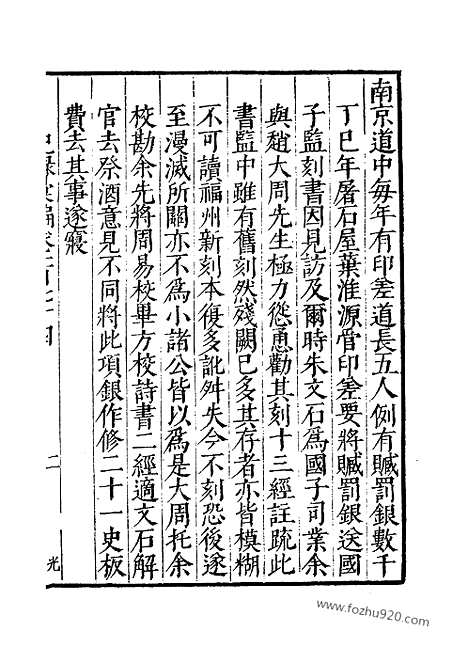 南京道中每年有印差道長五人例有贓罰銀數千
丁巳年屠石屋葉淮源管印差要將贓罰銀送國
子監刻書因見訪及爾時朱文石爲國子司業余
與趙大周先生極力慫恿勸其刻十三經註疏此
書監中雖有舊刻然殘闕已多其存者亦皆模糊
不可讀福州新刻本復多訛舛失今不刻恐後遂
至漫滅所關亦不爲小諸公皆以爲是大周托余
校勘余先將周易校畢方校詩書二經適文石解
官去祭酒意見不同將此項銀作修二十一史板
費去其事遂寢
二
光
www.fozhu920.com